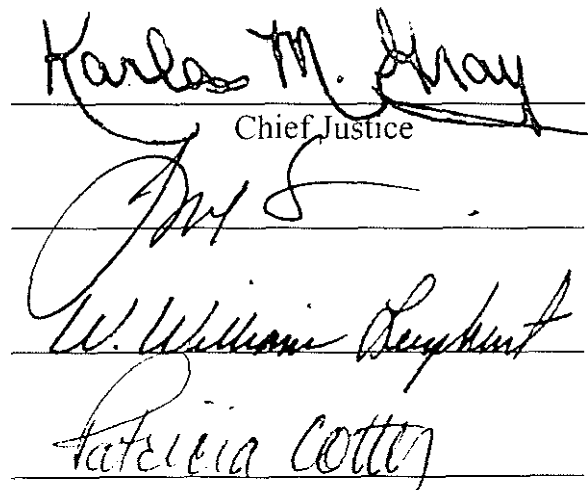 Karla M. Gray
Chief Justice
W. William Leaphart
Patricia Cotter